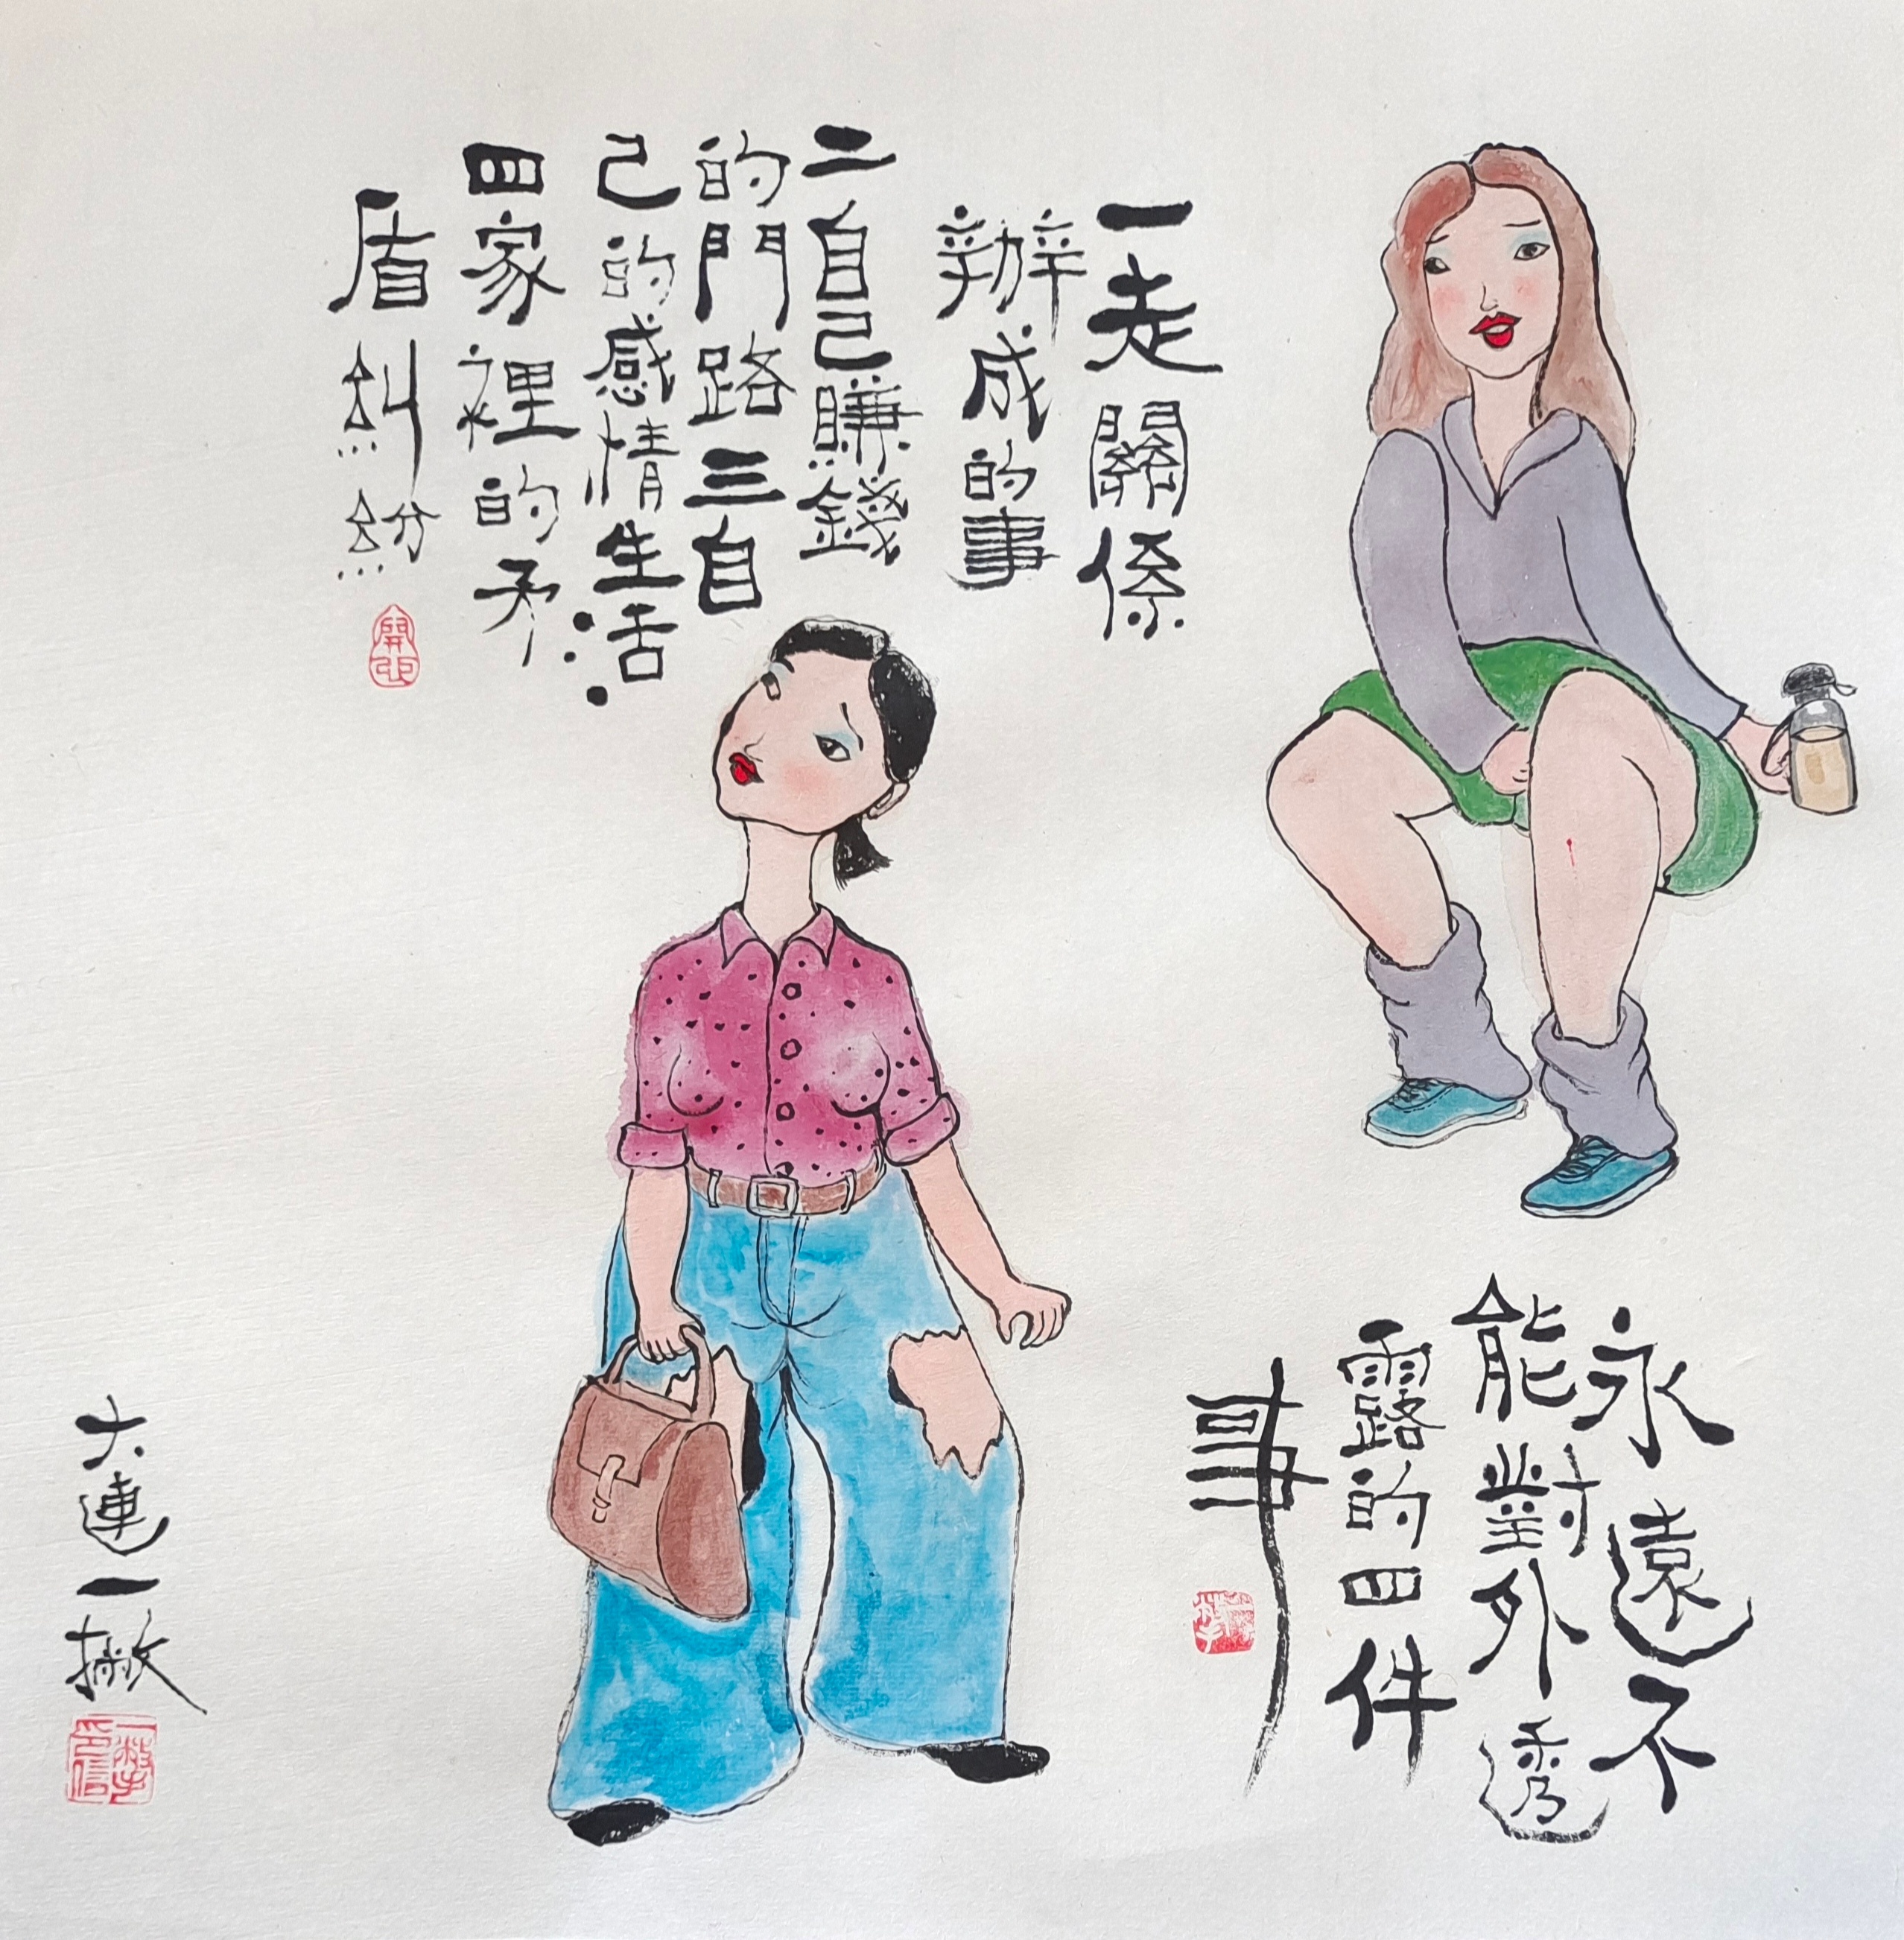 永遠不
能對外透
露的四件
事
一走關係
辦成的事
二自己賺錢
的門路三自
己的感情生活
四家裡的矛
盾糾紛
大連一撇